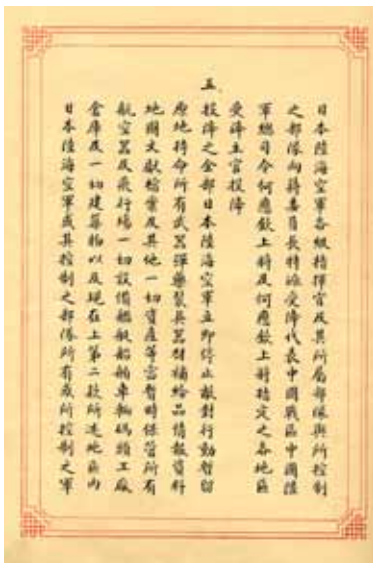 日本陸海空軍各級指揮官及其所屬部隊與所控制
之部隊向蔣委員長特派受降代表中國戰區中國陸
軍總司令何應欽上將及何應欽上將指定之各地區
受降主官投降
五、投降之全部日本陸海空軍立即停止敵對行動暫留
原地待命所有武器彈藥裝具器材補給品情報資料
地圖文獻檔案及其他一切資產等當暫時保管所有
航空器及飛行場一切設備艦艇船舶車輛碼頭工廠
倉庫及一切建築物以及現在上第二款所述地區內
日本陸海空軍或其控制之部隊所有或所控制之軍